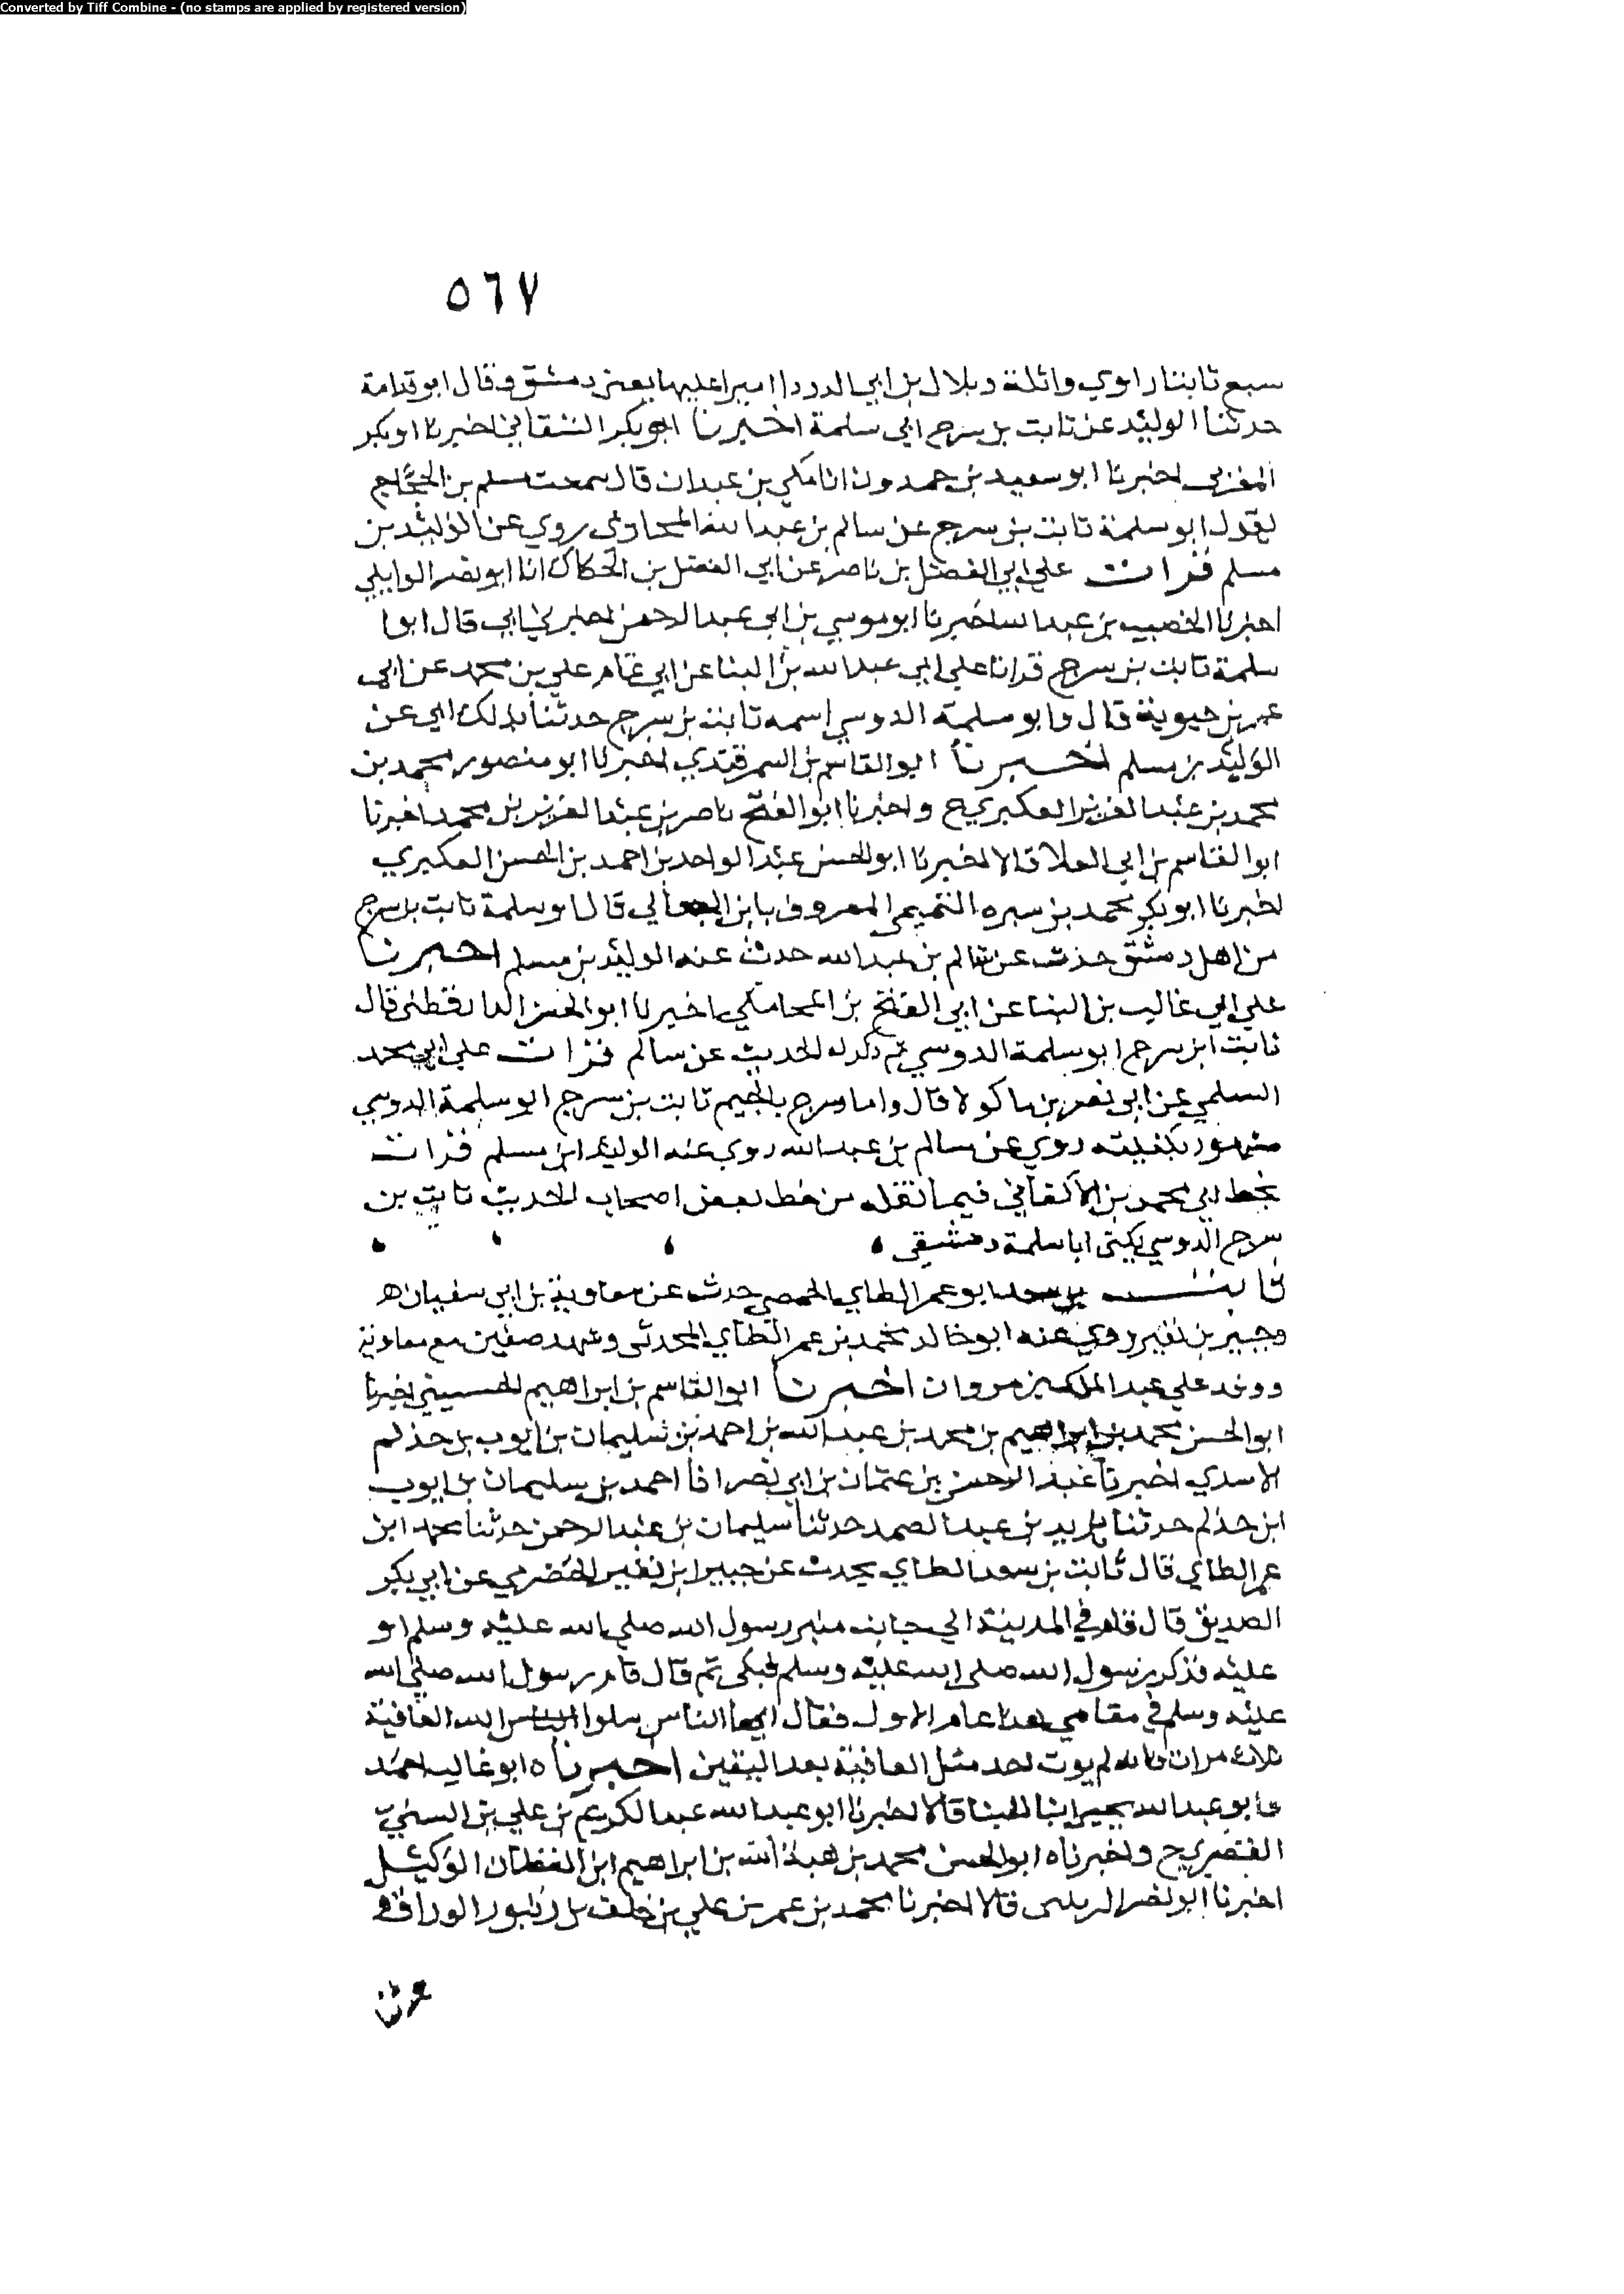 Converted by Tiff Combine - (no stamps are applied by registered version)
٥٦٧
سمع ثابتا راوي واثلة وبلال بن ابي الدردا اميرا عليها يعني دمشق وقال ابو قدامة
حدثنا الوليد عن ثابت بن سرج ابي سلمة اخبرنا ابو بكر الشقاني اخبرنا ابو بكر
المغربي اخبرنا ابو سعيد بن حمدون انا مكي بن عبدان قال سمعت مسلم بن الحجاج
يقول ابو سلمة ثابت بن سرج عن سالم بن عبد الله المحاربي روي عن الوليد بن
مسلم قرات علي ابي الفضل بن ناصر عن ابي الفضل بن الحكاك انا ابو نصر الوايلي
اخبرنا الخصيب بن عبد الله اخبرنا ابو موسي بن ابي عبد الرحمن اخبرني ابي قال ابوا
سلمة ثابت بن سرج قرانا علي ابي عبد الله بن البنا عن ابي تمام علي بن محمد عن ابي
عمر بن حيوية قال وابو سلمة الدوسي اسمه ثابت بن سرج حدثنا بذلك ابي عن
الوليد بن مسلم اخبرنا ابو القاسم بن السمرقندي اخبرنا ابو منصور محمد بن
محمد بن عبد العزيز العكبري ح واخبرنا ابو الفتح ناصر بن عبد العزيز بن محمد اخبرنا
ابو القاسم بن ابي العلا قالا اخبرنا ابو الحسن عبد الواحد بن احمد بن الحسن العكبري
اخبرنا ابو بكر محمد بن سبره التميمي المعروف بابن الجعالي قال ابو سلمة ثابت بن سرج
من اهل دمشق حدث عن سالم بن عبد الله حدث عنه الوليد بن مسلم اخبرنا
علي ابي غالب بن البنا عن ابي الفتح بن المحاملي اخبرنا ابو الحسن الدارقطني قال
ثابت ابن سرج ابو سلمة الدوسي ثم ذكر له الحديث عن سالم قرات علي ابي محمد
السلمي عن ابي نصر بن ماكولا قال واما سرج بالجيم ثابت بن سرج ابو سلمة الدوسي
مشهور بكنيته روي عن سالم بن عبد الله روي عنه الوليد ابن مسلم قرات
بخط ابي محمد بن الاكفاني فيما نقله من خط بعض اصحاب الحديث ثابت بن
سرج الدوسي يكني ابا سلمة دمشقي
ثابت بن سعد ابو عمر الطاي الحمصي حدث عن معاوية بن ابي سفيان
وجبير بن نفير روي عنه ابو خالد محمد بن عمر الطاي المحدثي وشهد صفين مع معاوية
ووفد علي عبد الملك بن مروان اخبرنا ابو القاسم بن ابراهيم الحسيني اخبرنا
ابو الحسن محمد بن ابراهيم بن محمد بن عبد الله بن احمد بن سليمان بن ايوب بن حذلم
الاسدي اخبرنا عبد الرحمن بن عثمان بن ابي نصر انا احمد بن سليمان بن ايوب
ابن حذلم حدثنا يزيد بن عبد الصمد حدثنا سليمان بن عبد الرحمن حدثنا محمد ابن
عمر الطاي قال ثابت بن سعد الطاي يحدث عن جبير ابن نفير الحضرمي عن ابي بكر
الصديق قال قام في المدينة الي جانب منبر رسول الله صلي الله عليه وسلم او
عليه فذكر رسول الله صلي الله عليه وسلم فبكي ثم قال قام رسول الله صلي الله
عليه وسلم في مقامي هذا عام الاول فقال ايها الناس سلوا الله العافية
ثلاث مرات فانه لم يوت احد مثل العافية بعد اليقين اخبرناه ابو غالب احمد
وابو عبد الله يحيى ابنا البنا قالا اخبرنا ابو عبد الله عبد الكريم بن علي بن السني
القصري ح واخبرناه ابو الحسن محمد بن هبة الله بن ابراهيم ابن الوكيل
اخبرنا ابو نصر قالا اخبرنا محمد بن عمر بن علي بن خلف بن زنبور الوراق